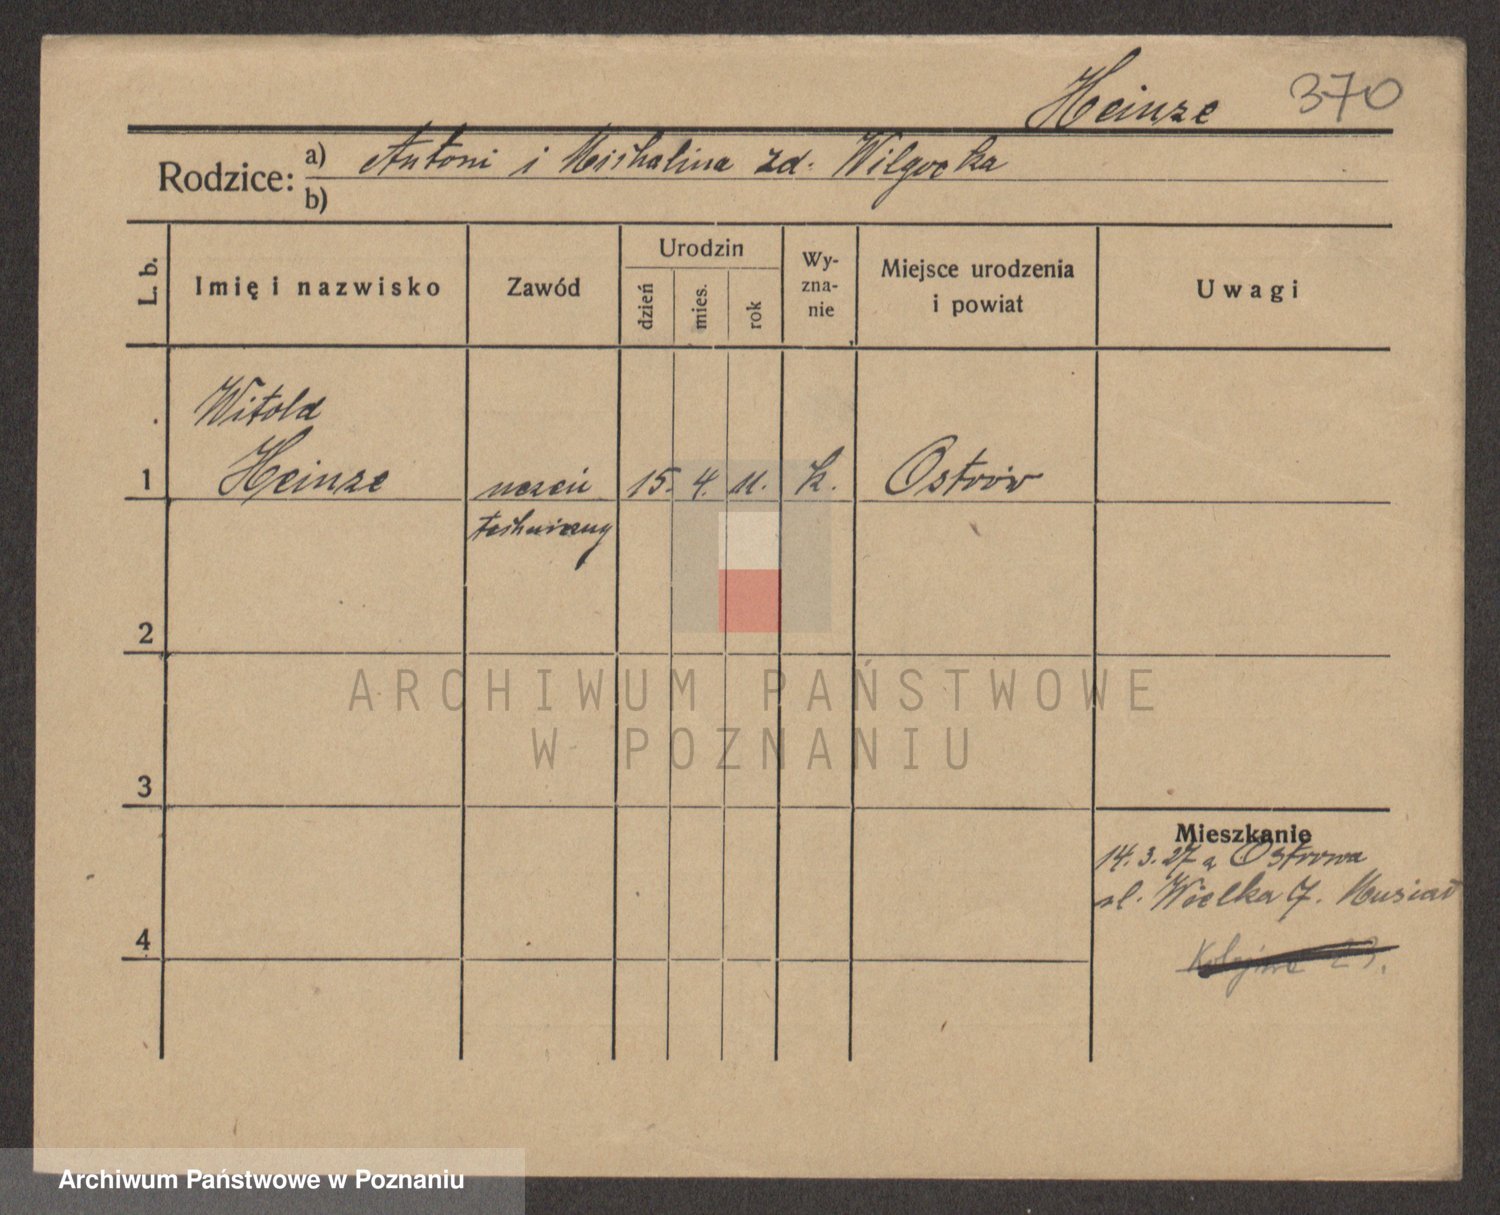 Heinze 370
Rodzice: a) Antoni i Michalina zd. Wilgocka
b)
L. b. Imię i nazwisko Zawód Urodzin dzień mies. rok Wy-zna-nie Miejsce urodzenia i powiat Uwagi
Witold
1 Heinze uczeń 15. 4. 11. k. Ostrów
techniczny
2
ARCHIWUM PAŃSTWOWE
W POZNANIU
3
Mieszkanie
14.3.27 z Ostrowa
ul. Wielka 7. Musiał
4
Kolejowa 23.
Archiwum Państwowe w Poznaniu